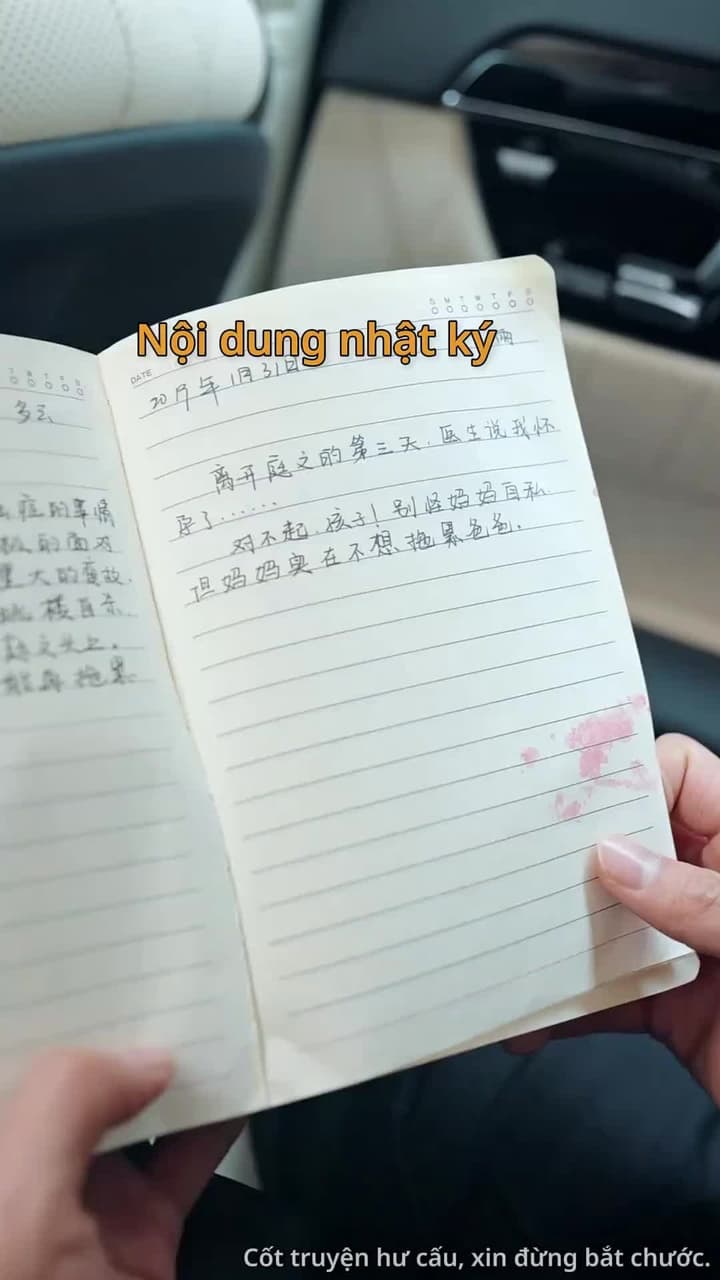 Nội dung nhật ký
DATE
S M T W T F S
2019年1月31日
雨
离开庭文的第三天,医生说我怀
孕了......
对不起,孩子!别怪妈妈自私
但妈妈实在不想拖累爸爸.
多云
症的事情
的面对
重大的变故.
跳楼自杀
拖累
Cốt truyện hư cấu, xin đừng bắt chước.